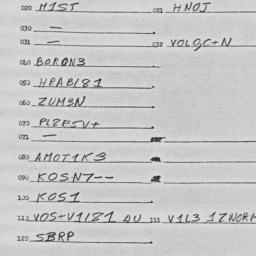 020 M1ST 021 HNOJ
030 —
031 — 032 VOLGC+N
040 BORON3
050 HRAB181
060 ZUM3N
070 PL2F5V+
071 —
080 AMOT1K3
090 KOSN7--
100 KOS1
110 VOS+V1/Z1 QU 111 V1L3 1ZNORM
120 SBRP